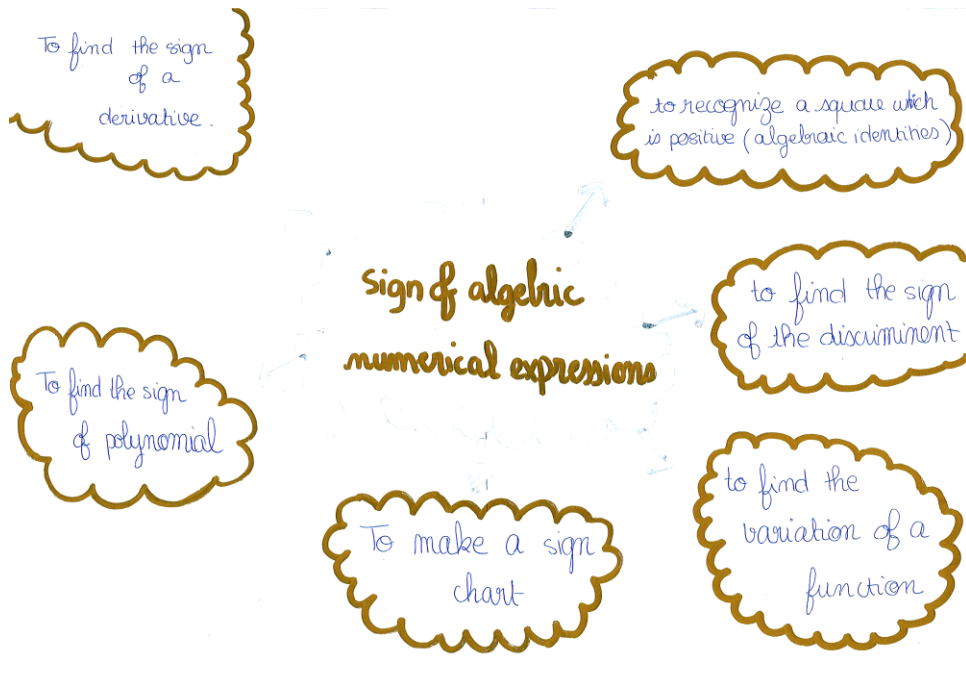 To find the sign
of a
derivative.
to recognize a square which
is positive (algebraic identities)
sign of algebric
numerical expressions
to find the sign
of the discriminent
To find the sign
of polynomial
to find the
variation of a
function
To make a sign
chart